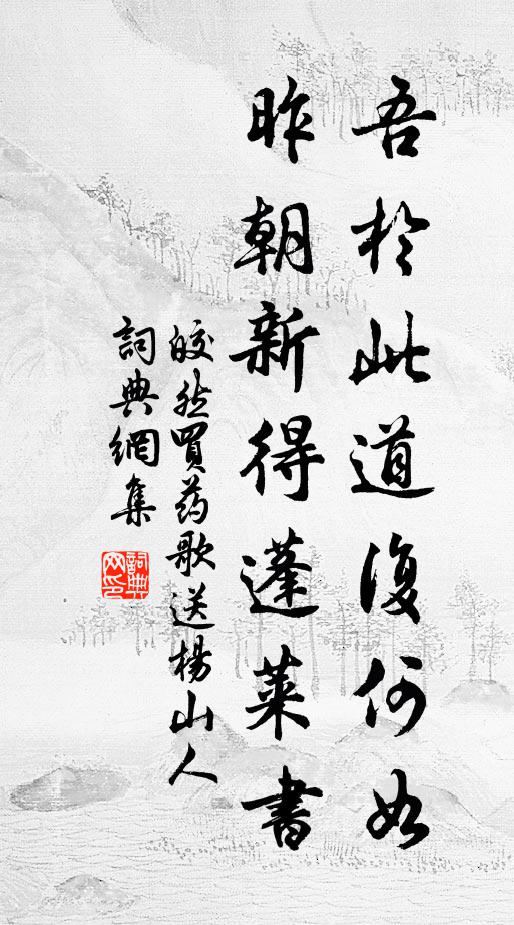 吾於此道復何如
昨朝新得蓬萊書
皎然買药歌送楊山人
詞典網集
詞典
网印